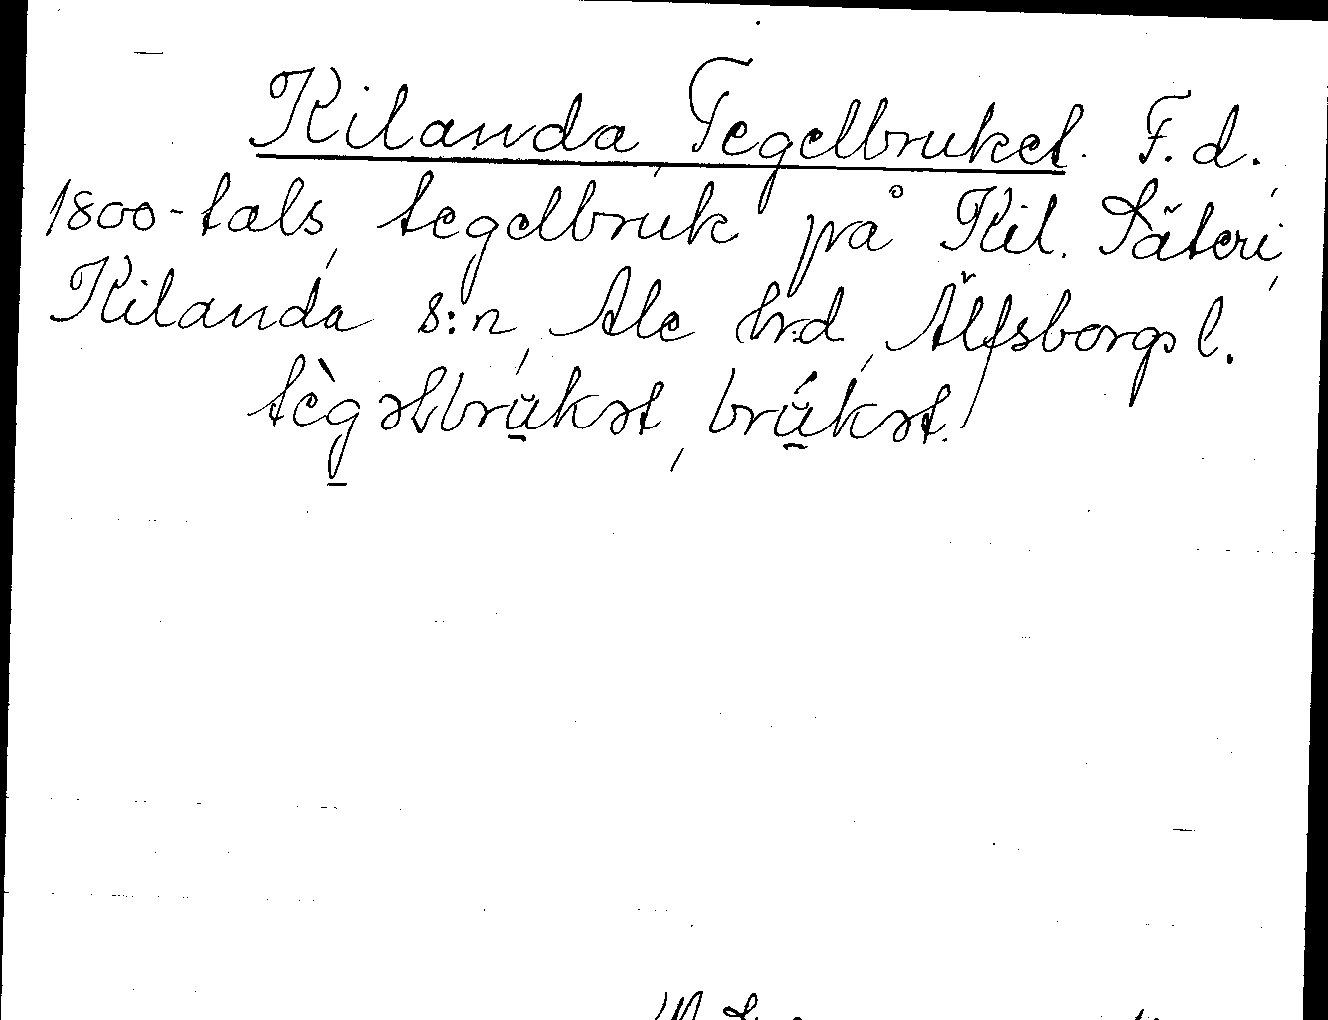 Kilanda, Tegelbruket. F.d.,
1800-tals, tegelbruk på Kil. Säteri,
Kilanda s:n, Ale hrd, Älfsborgs l.
tègəlbrūkət, brū́kət.